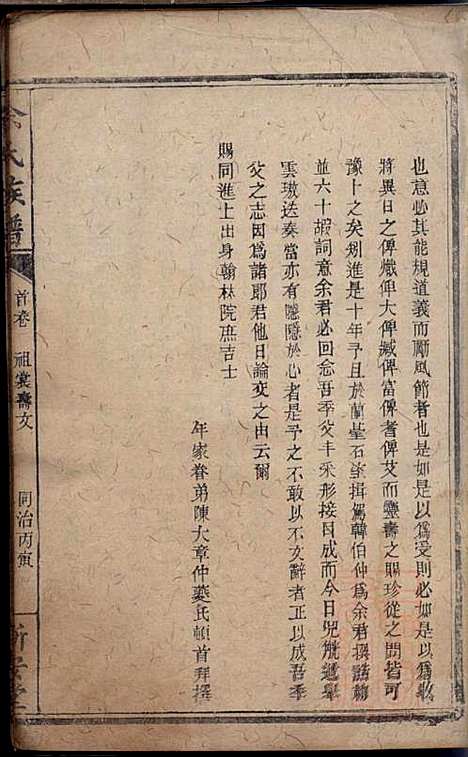 也意必其能規道義而勵風節者也是如是以爲受則必如是以爲報
將異日之俾熾俾大俾臧俾富俾耆俾艾而靈壽之賜珍從之問皆可
豫卜之矣矧進是十年予且於蘭臺石室揖駕韓伯仲爲余君撰
並六十嘏詞意余君必回念吾季父丰采形接日成而今日兕觥遞舉
雲璈迭奏當亦有隱隱於心者是予之不敢以不文辭者正以成吾季
父之志因爲諸郎君他日論交之由云爾
賜同進士出身翰林院庶吉士
年家眷弟陳大章仲夔氏頓首拜撰
余氏族譜
首卷 祖裳壽文
同治丙寅
新安堂